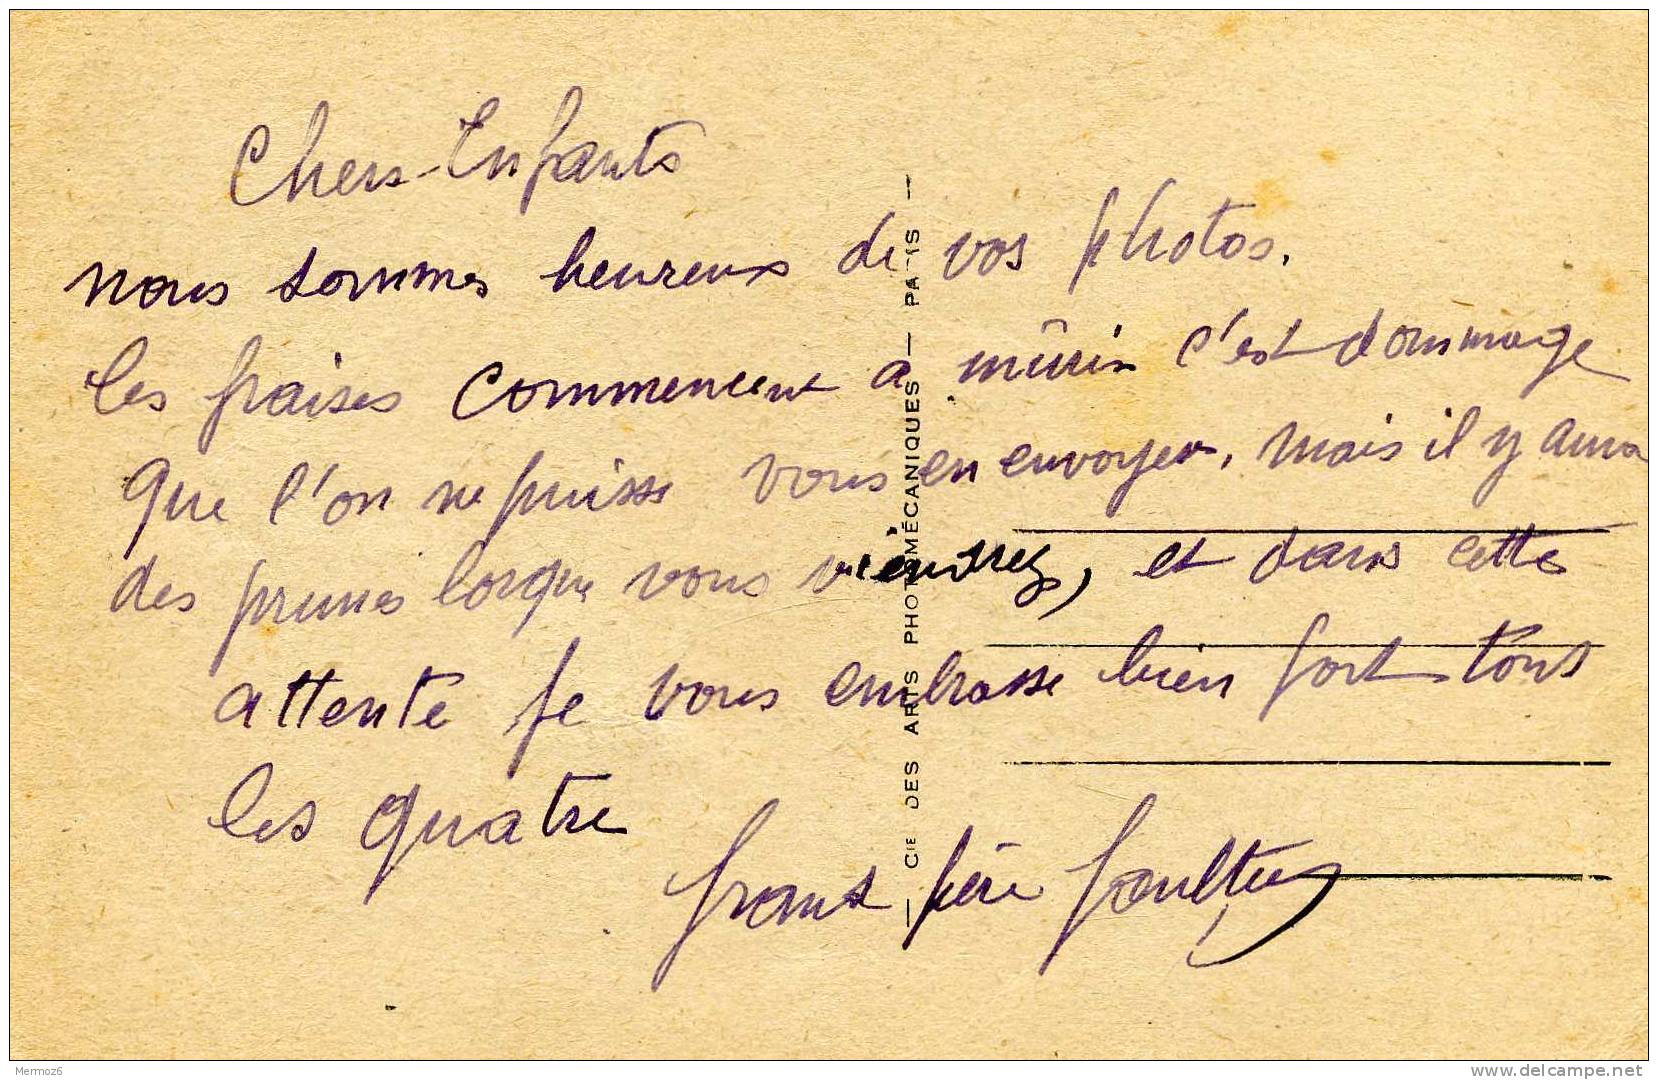 Chers Enfants
nous sommes heureux de vos photos.
les fraises commencent a mûrir c'est dommage
que l'on ne puisse vous en envoyer, mais il y aura
des prunes lorsque vous viendrez, et dans cette
attente je vous embrasse bien fort tous
les quatre
grand père
CIE DES ARTS PHOTOMÉCANIQUES — PARIS —
Mermoz6
www.delcampe.net